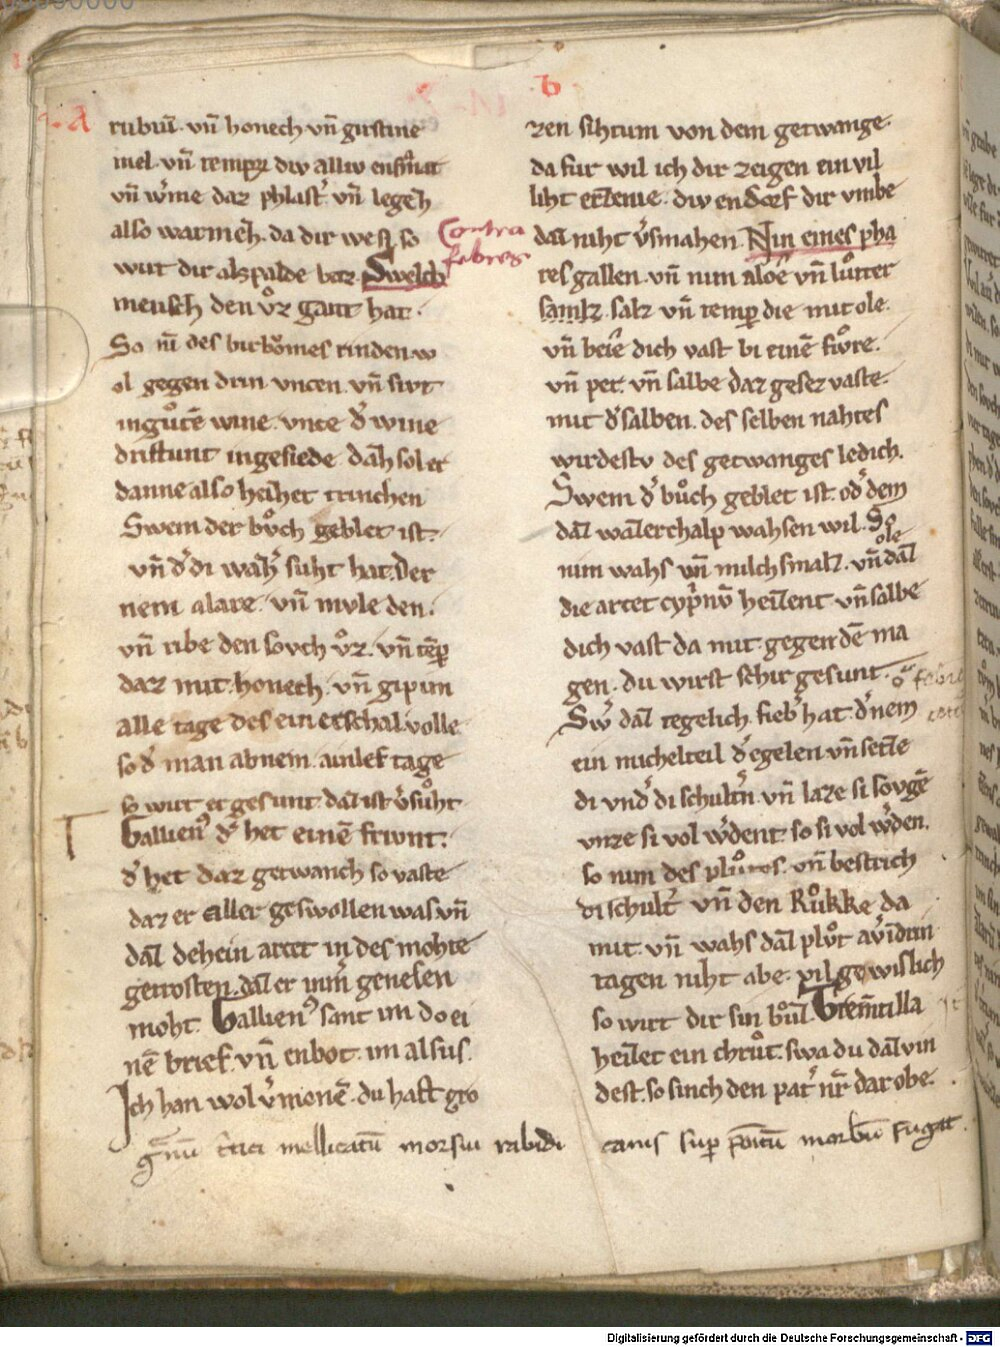 A
rubiū. vn̄ honech vn̄ girstine
mel. vn̄ temꝑ div alliv ensāmt
vn̄ wͬme daz phlastͬ vn̄ legeh̄
also warmeh̄. da dir we sy. so
wirt dir als palde baz. Swelch
mensch den vͦz ganc hat.
So nī des birbōmes rinden. w
ol gegen drin vncen. vn̄ sivt
in gůtē wine. vnce dͬ wine
dristunt ingesiede. dāh sol er
danne also heiz̄et trinchen
Swem der bůch geblet ist.
vn̄ dͬ di waz̄zͬ suht hat. Der
nem alare. vn̄ mule den.
vn̄ ribe den sovch vͦz. vn̄ tēꝑ
daz mit. honech. vn̄ gip im
alle tage des ein eischal. volle
so dͬ man abnem. ainlef tage
so wirt er gesunt. daz ist vͬsůht
Gallienꝰ dͬ het einē frivnt.
dͬ het daz getwanch so vaste
daz er aller geswollen was vn̄
daz dehein arcet in des mohte
getrosten. daz er im̄ͬ genesen
moht. Gallienꝰ sant im do ei
nē brief. vn̄ enbot. im alsus.
Ich han wol vͬnomē. du hast gro
Contra
febres
b
zen sihtum von dem getwange.
da fur wil ich dir zeigen ein vil
liht erzenie. div en dorf dir vmbe
daz niht vͬsmahen. Nin eines pha
res gallen. vn̄ nim aloê vn̄ lůtter
samtz. salz vn̄ temꝑ die mit ole.
vn̄ beiē dich vast bi einē fivͦre.
vn̄ pet. vn̄ salbe daz gesez vaste.
mit dͬ salben. des selben nahtes
wirdestv des getwanges ledich.
Swem dͬ bůch geblet ist. odͬ dem
daz wazzerchalp wahsen wil. So
nim wahs vn̄ milchsmalz. vn̄ daz
ole
die arcet cypͥnv̄ heizent vn̄ salbe
dich vast da mit. gegen dē ma
gen. du wirst schir gesunt.
Swͬ daz tegelich. fiebͬ hat. dͬ nem
ein michel teil dͬ egelen vn̄ setze
di vndͬ di schultͬn. vn̄ laze si sovgē
vnze si vol wͬdent. so si vol wͬden.
so nim des plůtes. vn̄ bestrich
di schultͬ vn̄ den Růkke da
mit. vn̄ wahs daz plůt av̄ drin
tagen niht abe. vil gewislich
so wirt dir sin bůz. Trem̄tilla
heizet ein chrůt. swa du daz vin
dest. so sinch den patͬ nr̄ dar obe.
gnū tͥtici mellicatū morsui rabidi canis suꝑ poītū morbū fugat.
Digitalisierung gefördert durch die Deutsche Forschungsgemeinschaft - DFG